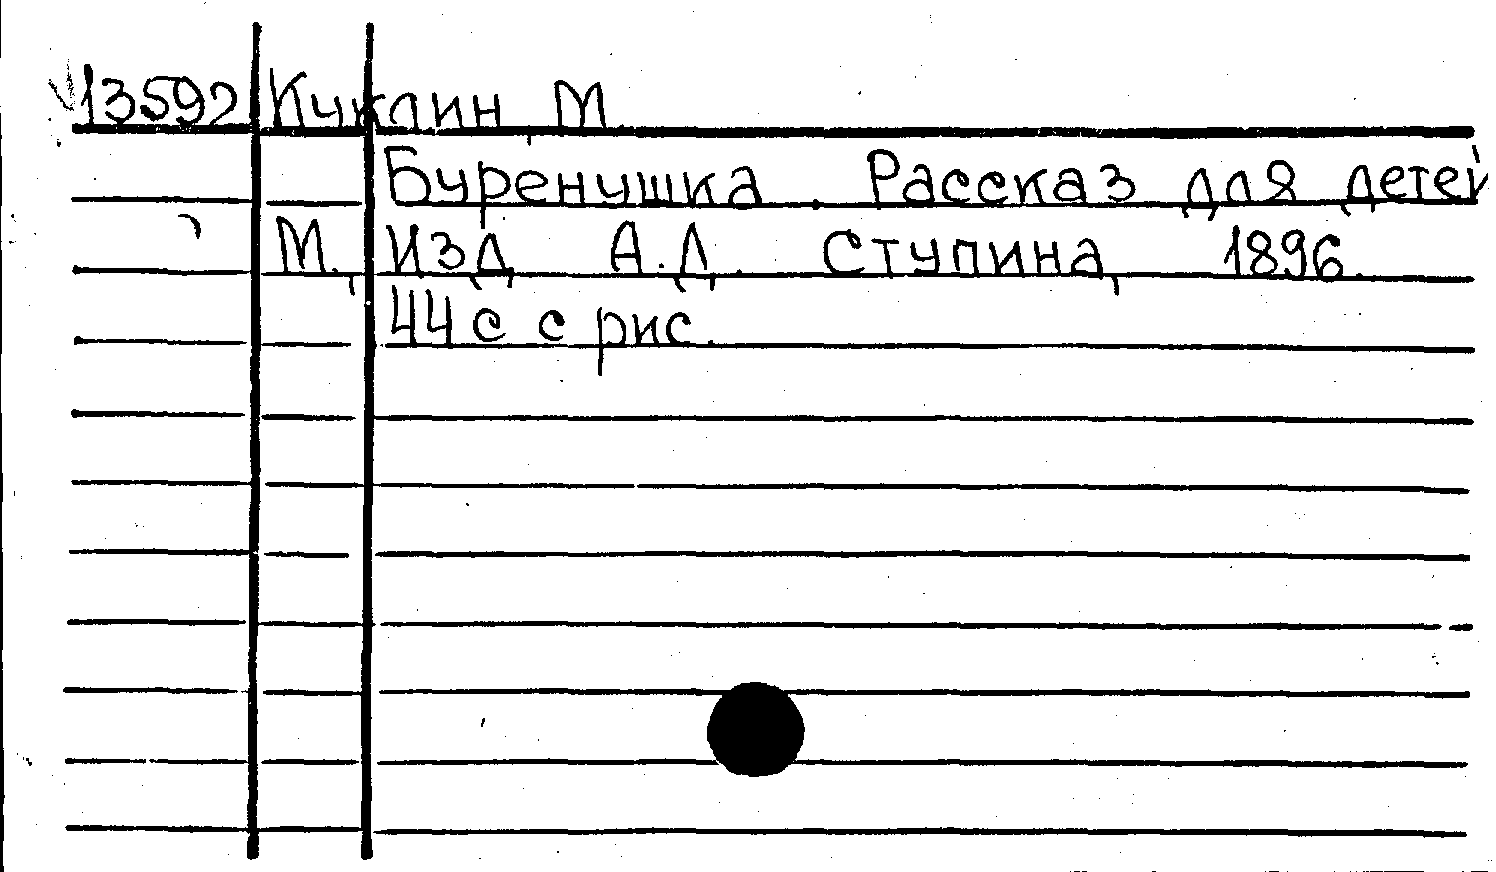 13592 Куклин, М.
Буренушка. Рассказ для детей
М., Изд. А.Д. Ступина, 1896.
44 с. с рис.